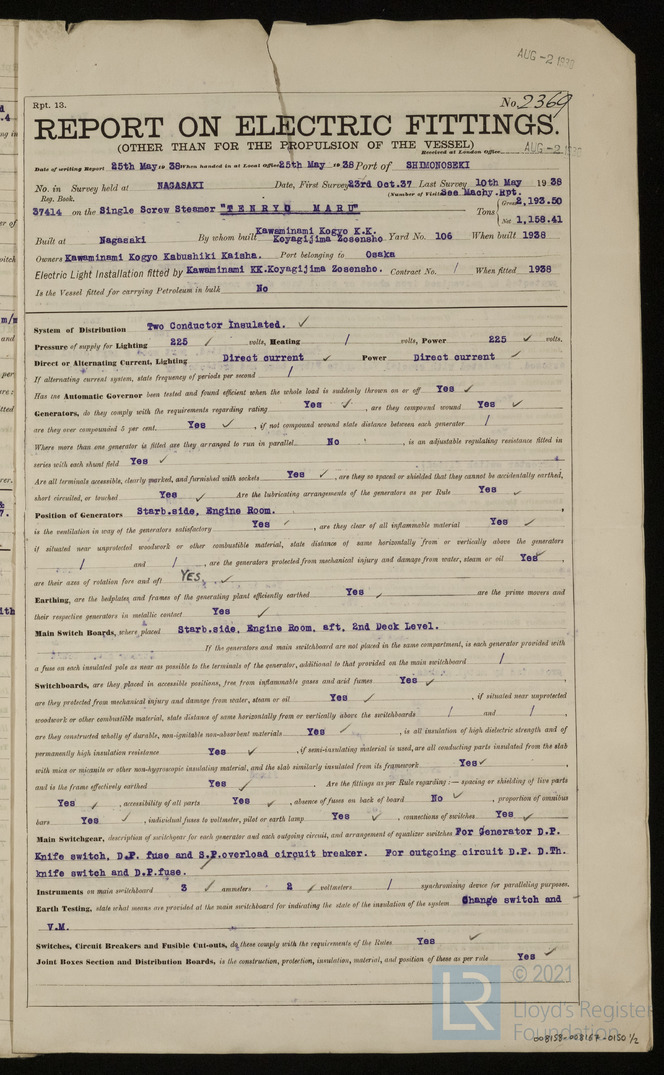 AUG -2 1938
Rpt. 13.
No. 2369
REPORT ON ELECTRIC FITTINGS.
(OTHER THAN FOR THE PROPULSION OF THE VESSEL)
Received at London Office AUG -2 1938
Date of writing Report 25th May 19 38 When handed in at Local Office 25th May 19 38 Port of SHIMONOSEKI
No. in Survey held at NAGASAKI Date, First Survey 23rd Oct.37 Last Survey 10th May 19 38
Reg. Book. (Number of Visits See Machy.Rpt.
37414 on the Single Screw Steamer "TENRYO MARU" Tons { Gross 2,193.50
Net 1,158.41
Built at Nagasaki By whom built Kawaminami Kogyo K.K. Koyagijima Zosensho Yard No. 106 When built 1938
Owners Kawaminami Kogyo Kabushiki Kaisha. Port belonging to Osaka
Electric Light Installation fitted by Kawaminami KK.Koyagijima Zosensho. Contract No. / When fitted 1938
Is the Vessel fitted for carrying Petroleum in bulk No
System of Distribution Two Conductor Insulated. ✓
Pressure of supply for Lighting 225 ✓ volts, Heating / volts, Power 225 ✓ volts.
Direct or Alternating Current, Lighting Direct current ✓ Power Direct current ✓
If alternating current system, state frequency of periods per second /
Has the Automatic Governor been tested and found efficient when the whole load is suddenly thrown on or off Yes ✓
Generators, do they comply with the requirements regarding rating Yes ✓ , are they compound wound Yes ✓
are they over compounded 5 per cent. Yes ✓ , if not compound wound state distance between each generator /
Where more than one generator is fitted are they arranged to run in parallel No , is an adjustable regulating resistance fitted in
series with each shunt field Yes ✓
Are all terminals accessible, clearly marked, and furnished with sockets Yes ✓ , are they so spaced or shielded that they cannot be accidentally earthed,
short circuited, or touched Yes ✓ Are the lubricating arrangements of the generators as per Rule Yes ✓
Position of Generators Starb.side, Engine Room.
is the ventilation in way of the generators satisfactory Yes ✓ , are they clear of all inflammable material Yes ✓
if situated near unprotected woodwork or other combustible material, state distance of same horizontally from or vertically above the generators
/ and / , are the generators protected from mechanical injury and damage from water, steam or oil Yes ✓ ,
are their axes of rotation fore and aft YES. ✓
Earthing, are the bedplates and frames of the generating plant efficiently earthed Yes ✓ are the prime movers and
their respective generators in metallic contact Yes ✓
Main Switch Boards, where placed Starb.side, Engine Room, aft, 2nd Deck Level.
If the generators and main switchboard are not placed in the same compartment, is each generator provided with
a fuse on each insulated pole as near as possible to the terminals of the generator, additional to that provided on the main switchboard /
Switchboards, are they placed in accessible positions, free from inflammable gases and acid fumes Yes ✓ ,
are they protected from mechanical injury and damage from water, steam or oil Yes ✓ , if situated near unprotected
woodwork or other combustible material, state distance of same horizontally from or vertically above the switchboards / and / ,
are they constructed wholly of durable, non-ignitable non-absorbent materials Yes ✓ , is all insulation of high dielectric strength and of
permanently high insulation resistance Yes ✓ , if semi-insulating material is used, are all conducting parts insulated from the slab
with mica or micanite or other non-hygroscopic insulating material, and the slab similarly insulated from its framework Yes ✓ ,
and is the frame effectively earthed Yes ✓ . Are the fittings as per Rule regarding:— spacing or shielding of live parts
Yes ✓ , accessibility of all parts Yes ✓ , absence of fuses on back of board No ✓ , proportion of omnibus
bars Yes ✓ , individual fuses to voltmeter, pilot or earth lamp Yes ✓ , connections of switches Yes ✓
Main Switchgear, description of switchgear for each generator and each outgoing circuit, and arrangement of equalizer switches For Generator D.P.
Knife switch, D.P. fuse and S.P.overload circuit breaker. For outgoing circuit D.P. D.Th.
knife switch and D.P.fuse.
Instruments on main switchboard 3 ✓ ammeters 2 ✓ voltmeters / synchronising device for paralleling purposes.
Earth Testing, state what means are provided at the main switchboard for indicating the state of the insulation of the system Change switch and
V.M.
Switches, Circuit Breakers and Fusible Cut-outs, do these comply with the requirements of the Rules Yes ✓
Joint Boxes Section and Distribution Boards, is the construction, protection, insulation, material, and position of these as per rule Yes ✓
LR © 2021
Lloyd's Register
Foundation
008158-008167-0150 1/2